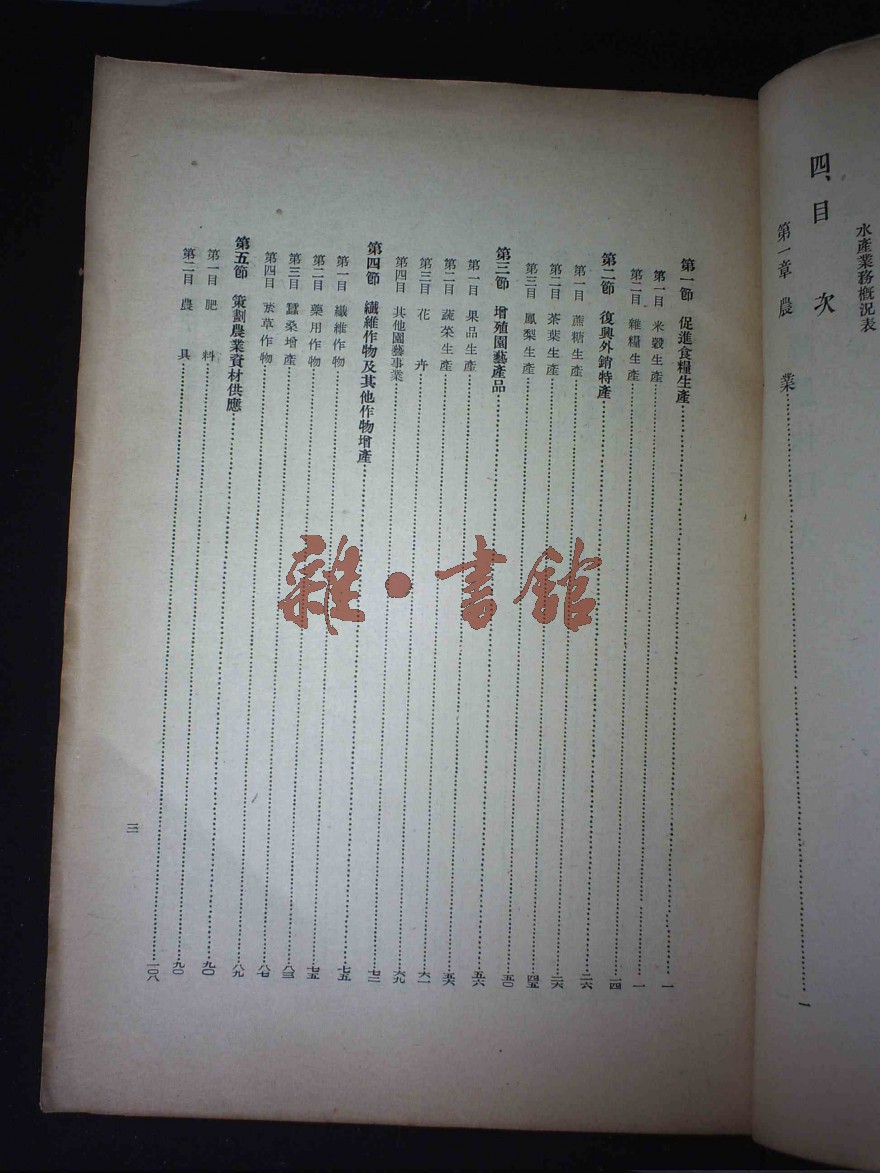 水產業務概況表
四、目次
第一章 農業……一
第一節 促進食糧生產……一
第一目 米穀生產……一
第二目 雜糧生產……一四
第二節 復興外銷特產……二六
第一目 蔗糖生產……二六
第二目 茶葉生產……四五
第三目 鳳梨生產……五〇
第三節 增殖園藝產品……五六
第一目 果品生產……五六
第二目 蔬菜生產……六一
第三目 花卉……六九
第四目 其他園藝事業……七二
第四節 纖維作物及其他作物增產……七五
第一目 纖維作物……七五
第二目 藥用作物……八三
第三目 蠶桑增產……八七
第四目 菸草作物……八九
第五節 策劃農業資材供應……九〇
第一目 肥料……九〇
第二目 農具……一〇八
三
雜·書館